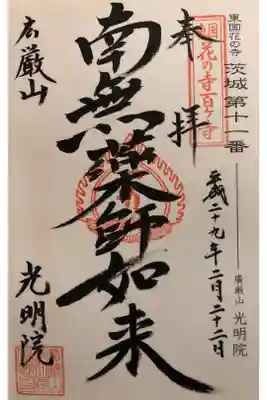 東国花の寺 茨城 第十一番
廣厳山 光明院
東国
花の寺百ヶ寺
奉拝
平成二十九年二月二十二日
南無薬師如来
広厳山
光明院